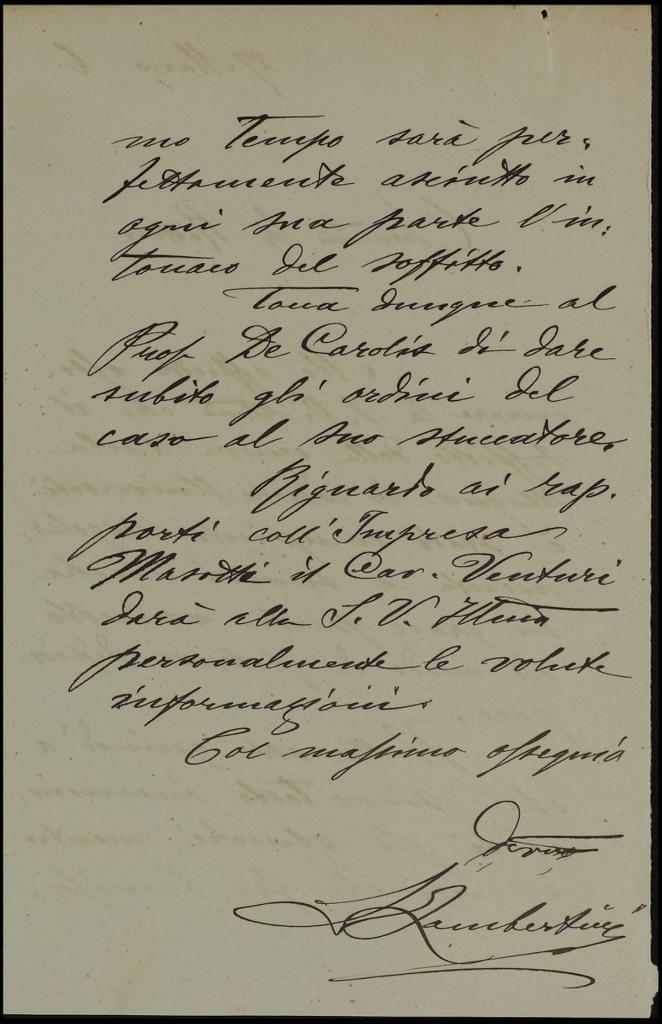 mo tempo sarà per-
fettamente asciutto in
ogni sua parte l'in-
tonaco del soffitto.
Tocca dunque al
Prof. De Carolis di dare
subito gli ordini del
caso al suo stuccatore.
Riguardo ai rap-
porti coll'Impresa
Masotti il Cav. Venturi
darà alla S. V. Illma
personalmente le volute
informazioni.
Col massimo ossequio
devmo
Lambertini